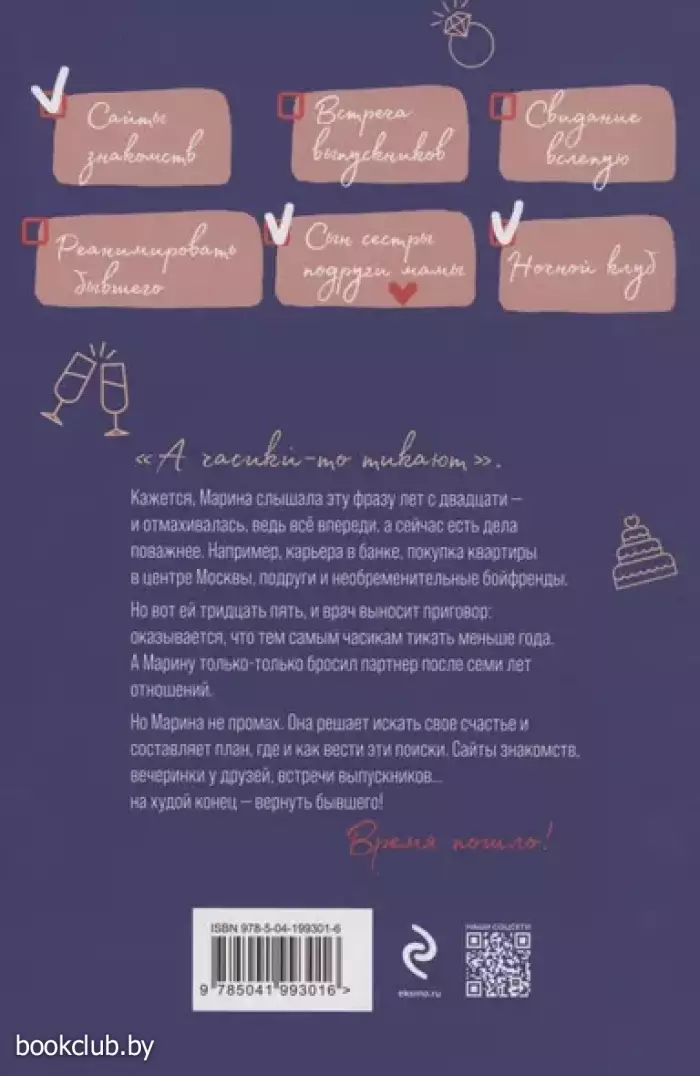 Сайты
знакомств
Встреча
выпускников
Свидание
вслепую
Реанимировать
бывшего
Сын сестры
подруги мамы
Ночной клуб
«А часики-то тикают».
Кажется, Марина слышала эту фразу лет с двадцати –
и отмахивалась, ведь всё впереди, а сейчас есть дела
поважнее. Например, карьера в банке, покупка квартиры
в центре Москвы, подруги и необременительные бойфренды.
Но вот ей тридцать пять, и врач выносит приговор:
оказывается, что тем самым часикам тикать меньше года.
А Марину только-только бросил партнер после семи лет
отношений.
Но Марина не промах. Она решает искать свое счастье и
составляет план, где и как вести эти поиски. Сайты знакомств,
вечеринки у друзей, встречи выпускников...
на худой конец – вернуть бывшего!
Время пошло!
ISBN 978-5-04-199301-6
9 785041 993016 >
eksmo.ru
НАШИ СОЦСЕТИ
bookclub.by